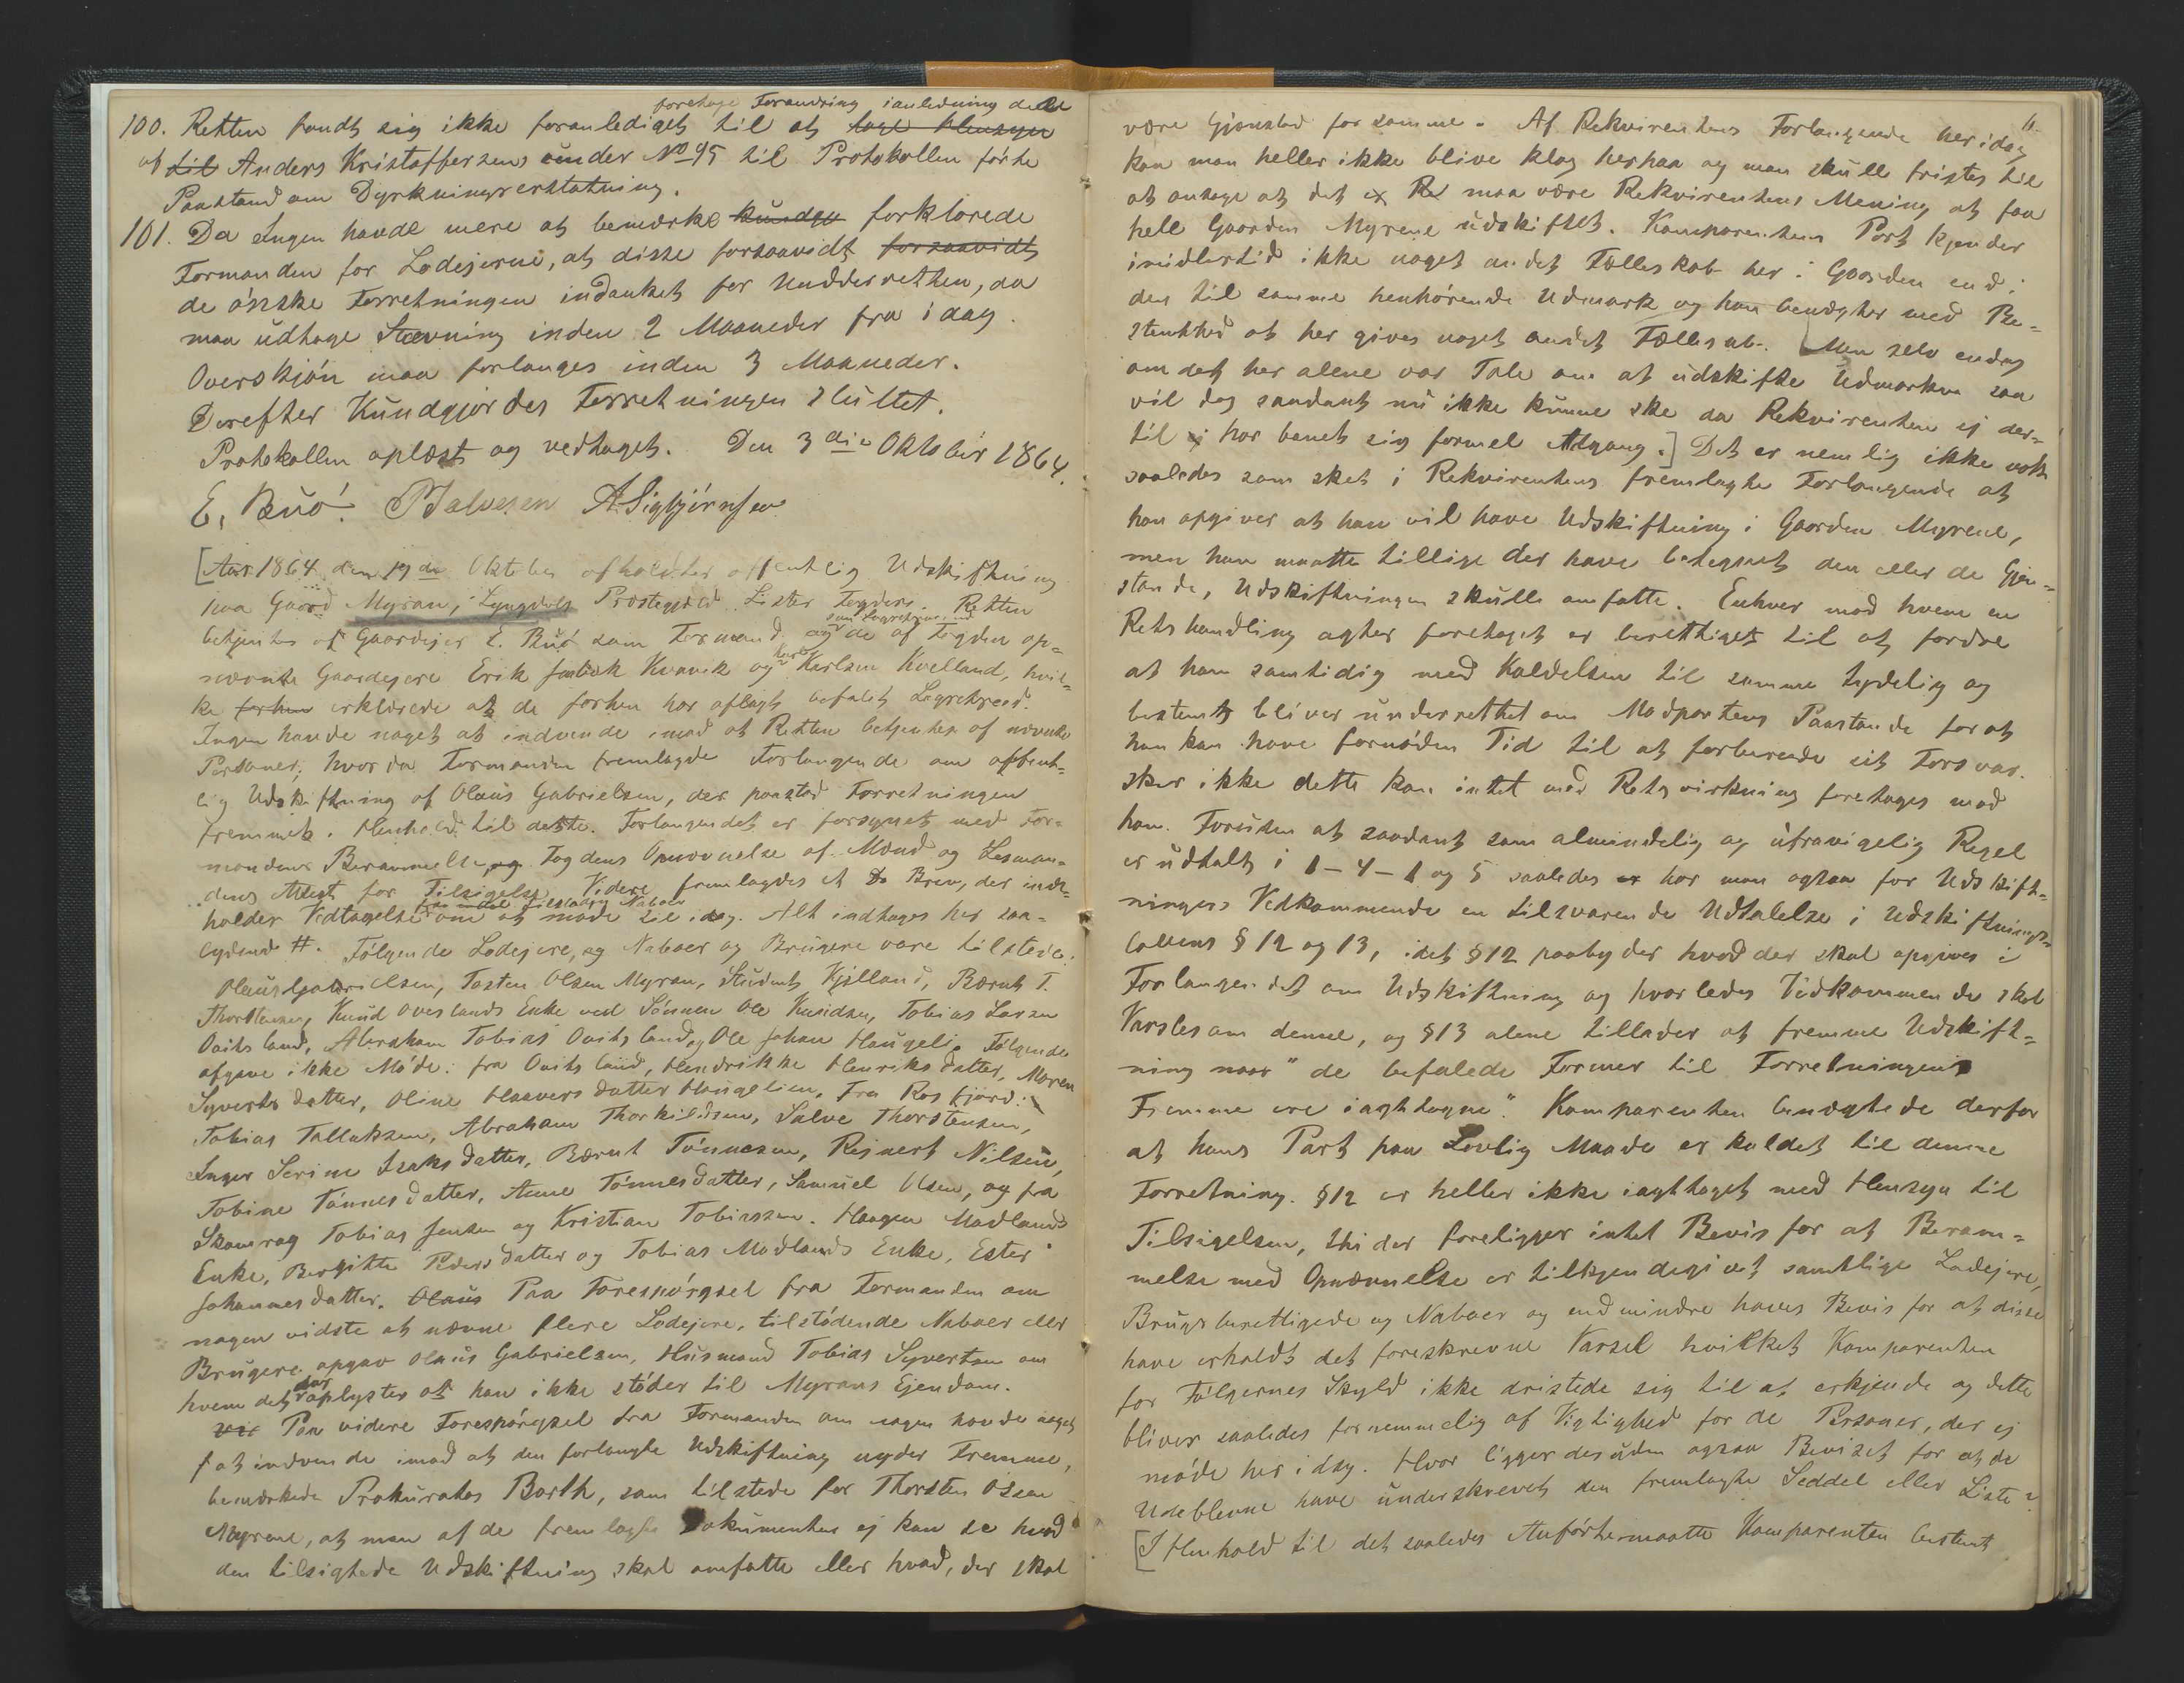 foretage Forandring ianledning deraf
100. Retten fandt sig ikke foranlediget til at tage Hensyn
af til Anders Kristoffersens under No 95 til Protokollen førte
Paastand om Dyrkningserstatning.
101. Da Ingen havde mere at bemærke kundgj forklarede
Formanden for Lodejerne, at disse forsaavidt forsaavidt
de ønske Forretningen indanket for Underretten, da
maa udtage Stævning inden 2 Maaneder fra idag.
Overskjøn maa forlanges inden 3 Maaneder.
Derefter Kundgjordes Forretningen sluttet.
Protokollen oplæst og vedtaget. Den 3die Oktober 1864.
E. Buø. P Salvesen A. Sigbjørnsen
[Aar 1864 den 19de Oktober afholdtes offentlig Udskiftning
paa Gaard Myran, Lyngdals Præstegjeld Lister Fogderi. Retten
som Lagrettemænd
betjentes af Gaardejer E. Buø som Formand og de af Fogden op=
nævnte Gaardejere Erik Kvavik og Karlsen Kvelland, hvil=
ke forhen erklærede at de forhen har aflagt befalet Lagretteed.
Ingen havde noget at indvende imod at Retten betjentes af nævnte
Personer; hvorda Formanden fremlagde Forlangende om offent=
lig Udskiftning af Olaus Gabrielsen, der paastod Forretningen
fremmet. Henhold til dette. Forlangendet er forsynet med For=
mandens Berammelse, og Fogdens Opnævnelse af Mænd og Lensman=
dens Attest for Tilsigelse. Videre fremlagdes et Do Brev, der inde=
fra en Del Naboer
holder Vedtagelse om at møde til idag. Alt indtages her saa=
lydende #. Følgende Lodejere, og Naboer og Brugere vare tilstede:
Olaus Gabrielsen, Tosten Olsen Myran, Student Kjelland, Bernt T.
Thorstensen, Knud Overlands Enke ved Sønnen Ole Knudsen, Tobias Larsen
Oaitsland, Abraham Tobias Oaitsland, Ole Johan Haugeli. Følgende
afgave ikke Møde: fra Oaitsland, Hendrikke Henriksdatter, Maren
Syvertsdatter, Oline Haaversdatter Haugelien. Fra Rosfjord:
Tobias Tallaksen, Abraham Thorkildsen, Salve Thorstensen,
Inger Serine Isaksdatter, Bærnt Tønnesen, Rejnert Nilsen,
Tobine Tønnesdatter, Anne Tønnesdatter, Samuel Olsen, og fra
Skomrag Tobias Jensen og Kristian Tobiassen. Haagen Madlands
Enke, Bergitte Pedersdatter og Tobias Modlands Enke, Ester
Johannesdatter. Olaus Paa Forespørgsel fra Formanden om
nogen vidste at nævne flere Lodejere, tilstødende Naboer eller
Brugere opgav Olaus Gabrielsen, Husmand Tobias Syvertsen om
hvem det dog oplystes at han ikke støder til Myrans Ejendom.
vi Paa videre Forespørgsel fra Formanden om nogen havde noget
at indvende imod at den forlangte Udskiftning nyder Fremme,
bemærkede Prokurator Barth, som tilstede for Thorsten Olsen
Myrene, at man af de fremlagte Dokumenter ej kan se hvad
den tilsigtede Udskiftning skal omfatte eller hvad, der skal
6.
være Gjenstad for samme. Af Rekvirentens Forlangende heridag
kan man heller ikke blive klog herpaa og man skulle fristes til
at antage at det ej Re maa være Rekvirentens Mening at faa
hele Gaarden Myrene udskiftet. Komparentens Part kjender
imidlertid ikke noget andet Fælleskab her i Gaarden end i
den til samme henhørende Udmark og han benægter med Be=
stemthed at her gives noget andet Fællesab. [Men selv endog
om det her alene var Tale om at udskifte Udmarken saa
vil dog saadant nu ikke kunne ske da Rekvirenten ej der=
til ej har banet sig formel Adgang.] Det er nemlig ikke nok
saaledes som sket i Rekvirentens fremlagte Forlangende at
han opgiver at han vil have Udskiftning i Gaarden Myrene,
men han maatte tillige der have betegnet den eller de Gjen=
stande, Udskiftningen skulle omfatte. Enhver mod hvem en
Retshandling agtes foretaget er berettiget til at fordre
at han samtidig med Kaldelsen til samme tydelig og
bestemt bliver underrettet om Modpartens Paastande forat
han kan have fornøden Tid til at forberede sit Forsvar.
sker ikke dette kan intet med Retsvirkning foretages mod
ham. Foruden at saadant som almindelig og ufravigelig Regel
er udtalt i 1-4-1 og 5 saaledes er har man ogsaa for Udskift=
ningers Vedkommende en tilsvarende Udtalelse i Udskiftnings=
lovens § 12 og 13, idet § 12 paabyder hvad der skal opgives i
Forlangendet om Udskiftning og hvorledes Vedkommende skal
Varsles om denne, og § 13 alene tillader at fremme Udskift=
ning naar "de befalede Former til Forretningens
Fremme ere iagttagne". Komparenten benægtede derfor
at hans Part paa Lovlig Maade er kaldet til denne
Forretning. § 12 er heller ikke iagttaget med Hensyn til
Tilsigelsen, thi der foreligger intet Bevis for at Beram=
melse med Opnævnelse er tilkjendegivet samtlige Lodejere,
Brugsberettigede og Naboer og endmindre haves Bevis for at disse
have erholdt det foreskrevne Varsel hvilket Komparenten
for Følgernes Skyld ikke dristede sig til at erkjende og dette
bliver saaledes fornemmelig af Vigtighed for de Personer, der ej
møde her idag. Hvor ligger desuden ogsaa Beviset for at de
Udeblevne have underskrevet den fremlagte Seddel eller Liste?
[I Henhold til det saaledes Anførte maatte Komparenten bestemt